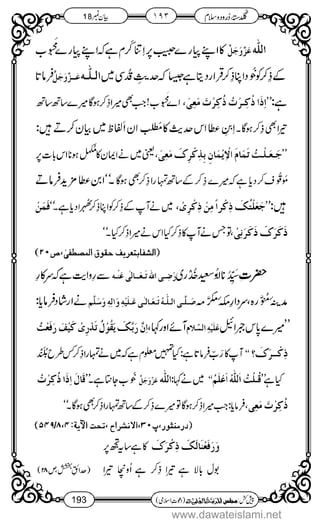 گلدستۂ درود و سلام ۱۹۳ بیان نمبر18
اللہ عَزَّوَجَلَّ کا اپنے پیارے حبیب پر اِتنا کرم ہے کہ اپنے پیارے محبوب
کے ذِکر کو خود اپنا ذِکر قرار دیتا ہے جیسا کہ حدیثِ قُدسی میں اللہ عَزَّوَجَلَّ فرماتا
ہے: ’’اِذَا ذُکِرْتُ ذُکِرْتَ مَعِیَ ، اے محبوب! جب بھی میرا ذِکر ہوگا میرے ساتھ ساتھ
تیرا بھی ذِکر ہوگا۔ اِبنِ عطا اس حدیث کا مطلب ان الفاظ میں بیان کرتے ہیں:
’’جَعَلْتُ تَمَامَ الْاِیْمَانِ بِذِکْرِکَ مَعِیَ، یعنی میں نے ایمان کا مکمل ہونا اس بات پر
موقوف کردیا ہے کہ میرے ذِکر کے ساتھ تمہارا ذِکر بھی ہوگا۔‘‘ ابنِ عطا مزید فرماتے
ہیں: ’’جَعَلْتُکَ ذِکْرًا مِنْ ذِکْرِیْ، میں نے آپ کے ذِکر کو اپنا ذِکر ٹھہرا دیا ہے۔‘‘ فَمَنْ
ذَکَرَکَ ذَکَرَنِیْ، تو جس نے آپ کا ذِکر کیا اس نے میرا ذِکر کیا۔‘‘
(الشفابتعریف حقوق المصطفیٰ،ص۲۰)
حضرتِ سَیِّدُنا ابو سعید خُدْری رَضِیَ اللہُ تَعَالٰی عَنْہُ سے روایت ہے کہ سرکارِ
مدینہ منورہ، سردارِ مکہ مکرمہ صَلَّی اللہُ تَعَالٰی عَلَیْہِ وَاٰلِہٖ وَسَلَّم نے ارشاد فرمایا:
’’میرے پاس جبرائیل عَلَیْہِ السَّلَام آئے اور کہا: اِنَّ رَبَّکَ یَقُوْلُ تَدْرِیْ کَیْفَ رَفَعْتُ
ذِکْرَکَ؟ آپ کا رب فرماتا ہے: کیا تمہیں معلوم ہے کہ میں نے تمہارا ذِکر کس طرح بلند
کیا ہے‘‘ ’’قُلْتُ اَللّٰہُ اَعْلَمُ‘‘ میں نے کہا: اللہ عَزَّوَجَلَّ خوب جانتا ہے۔ ’’قَالَ اِذَا ذُکِرْتُ
ذُکِرْتَ مَعِیَ، فرمایا: جب میرا ذِکر ہوگا تو میرے ذِکر کے ساتھ تمہارا ذِکر بھی ہوگا۔‘‘
(درمنثور،پ۳۰،الانشراح،تحت الآیۃ:۵۴۹/۸،۴)
وَرَفَعْنَا لَکَ ذِکْرَکَ کا ہے سایہ تجھ پر
بول بالا ہے تیرا ذِکر ہے اُونچا تیرا (حدائقِ بخشش،ص۲۸)
193
www.dawateislami.net